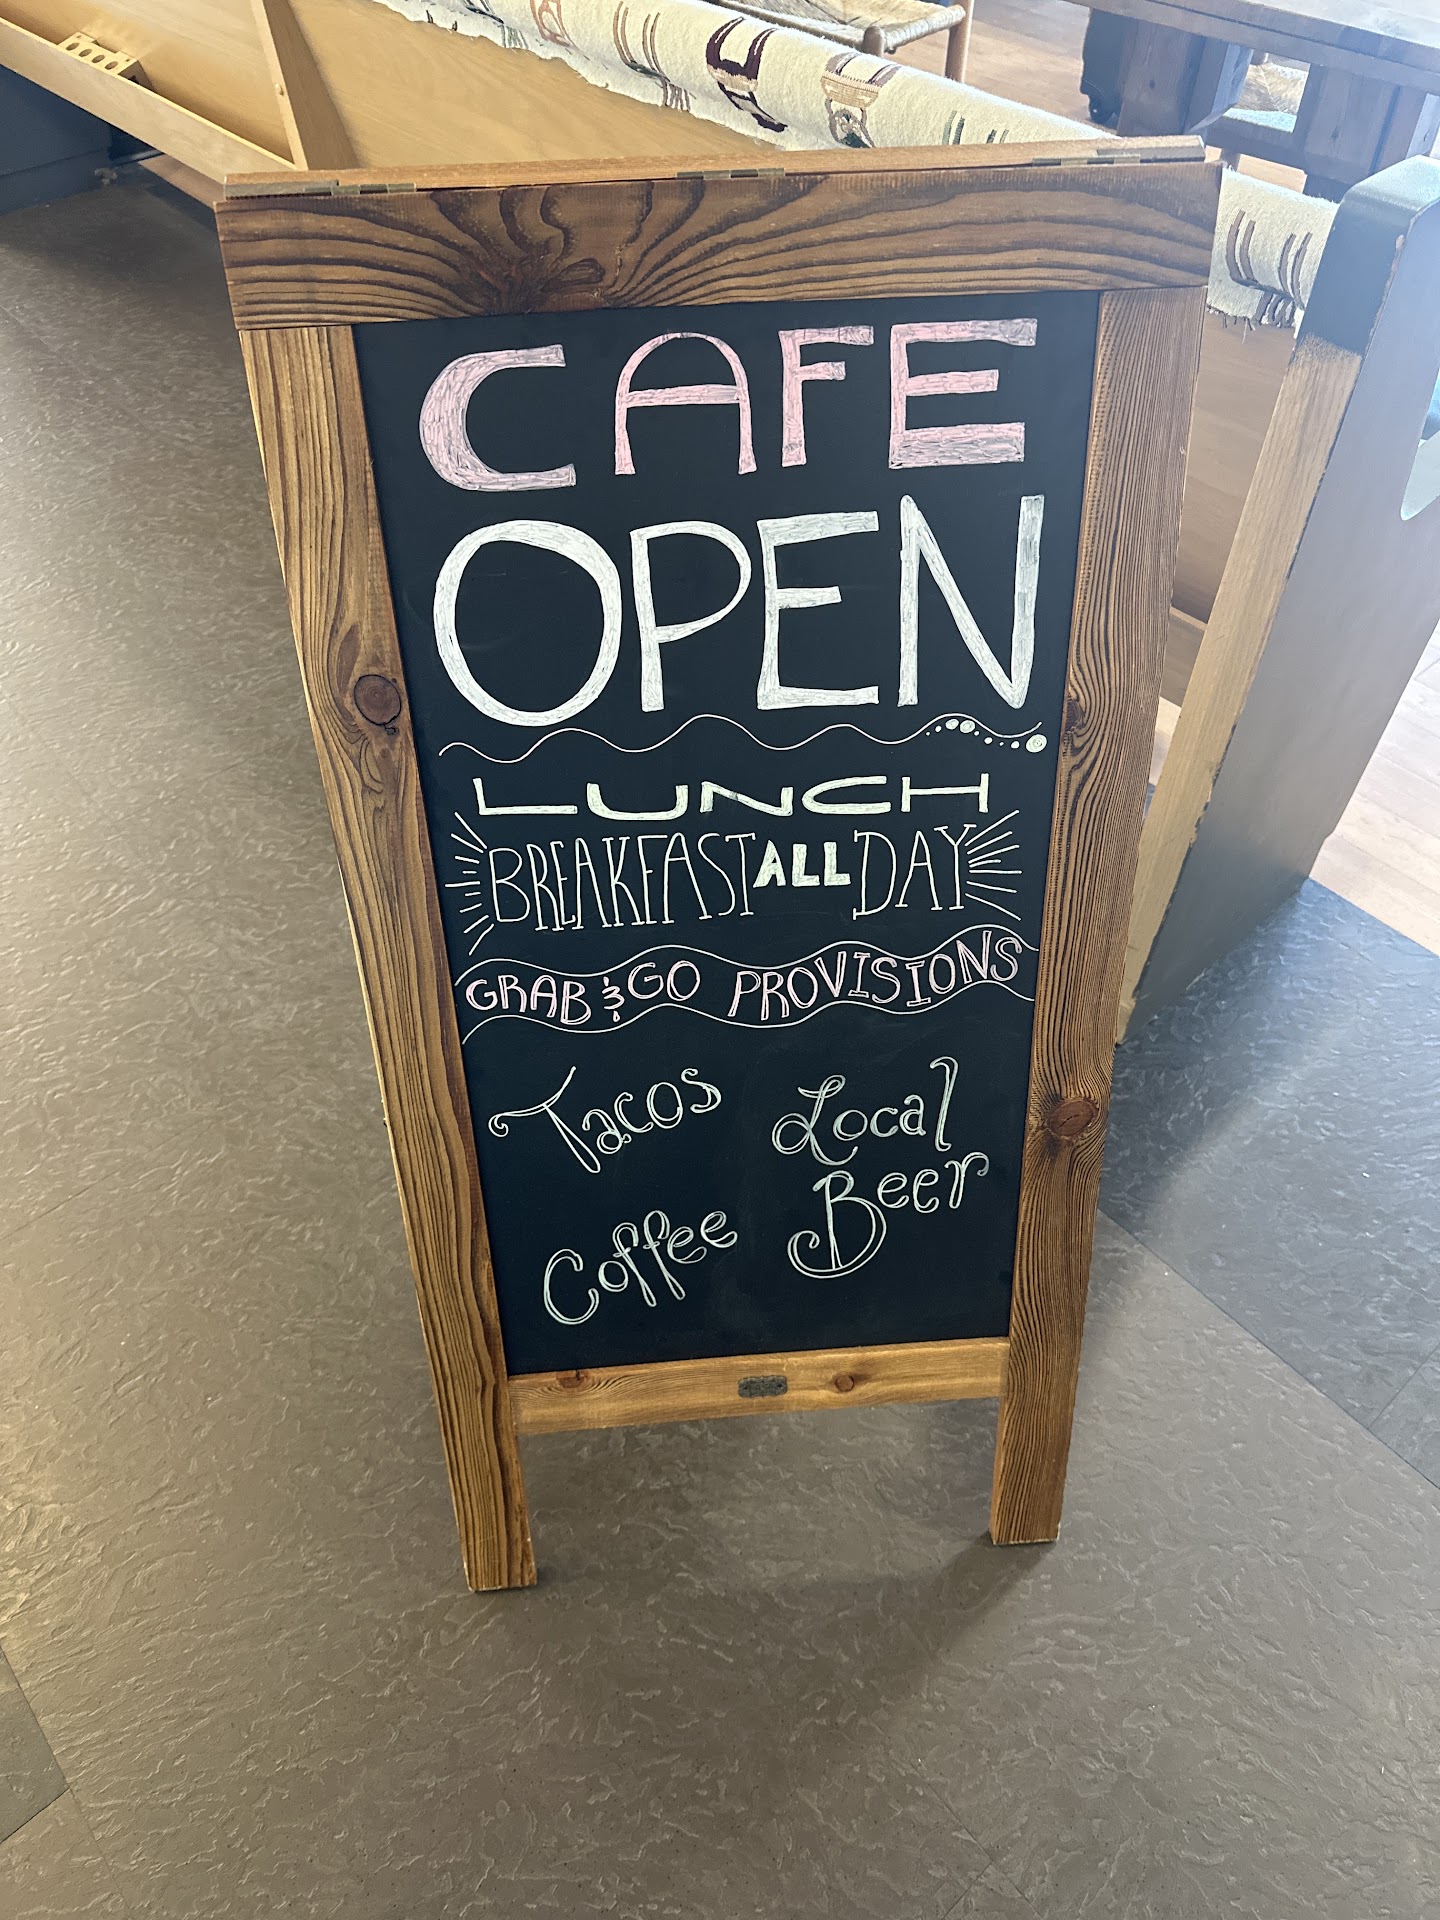 CAFE
OPEN
LUNCH
BREAKFAST ALL DAY
GRAB & GO PROVISIONS
Tacos
Local
Beer
Coffee